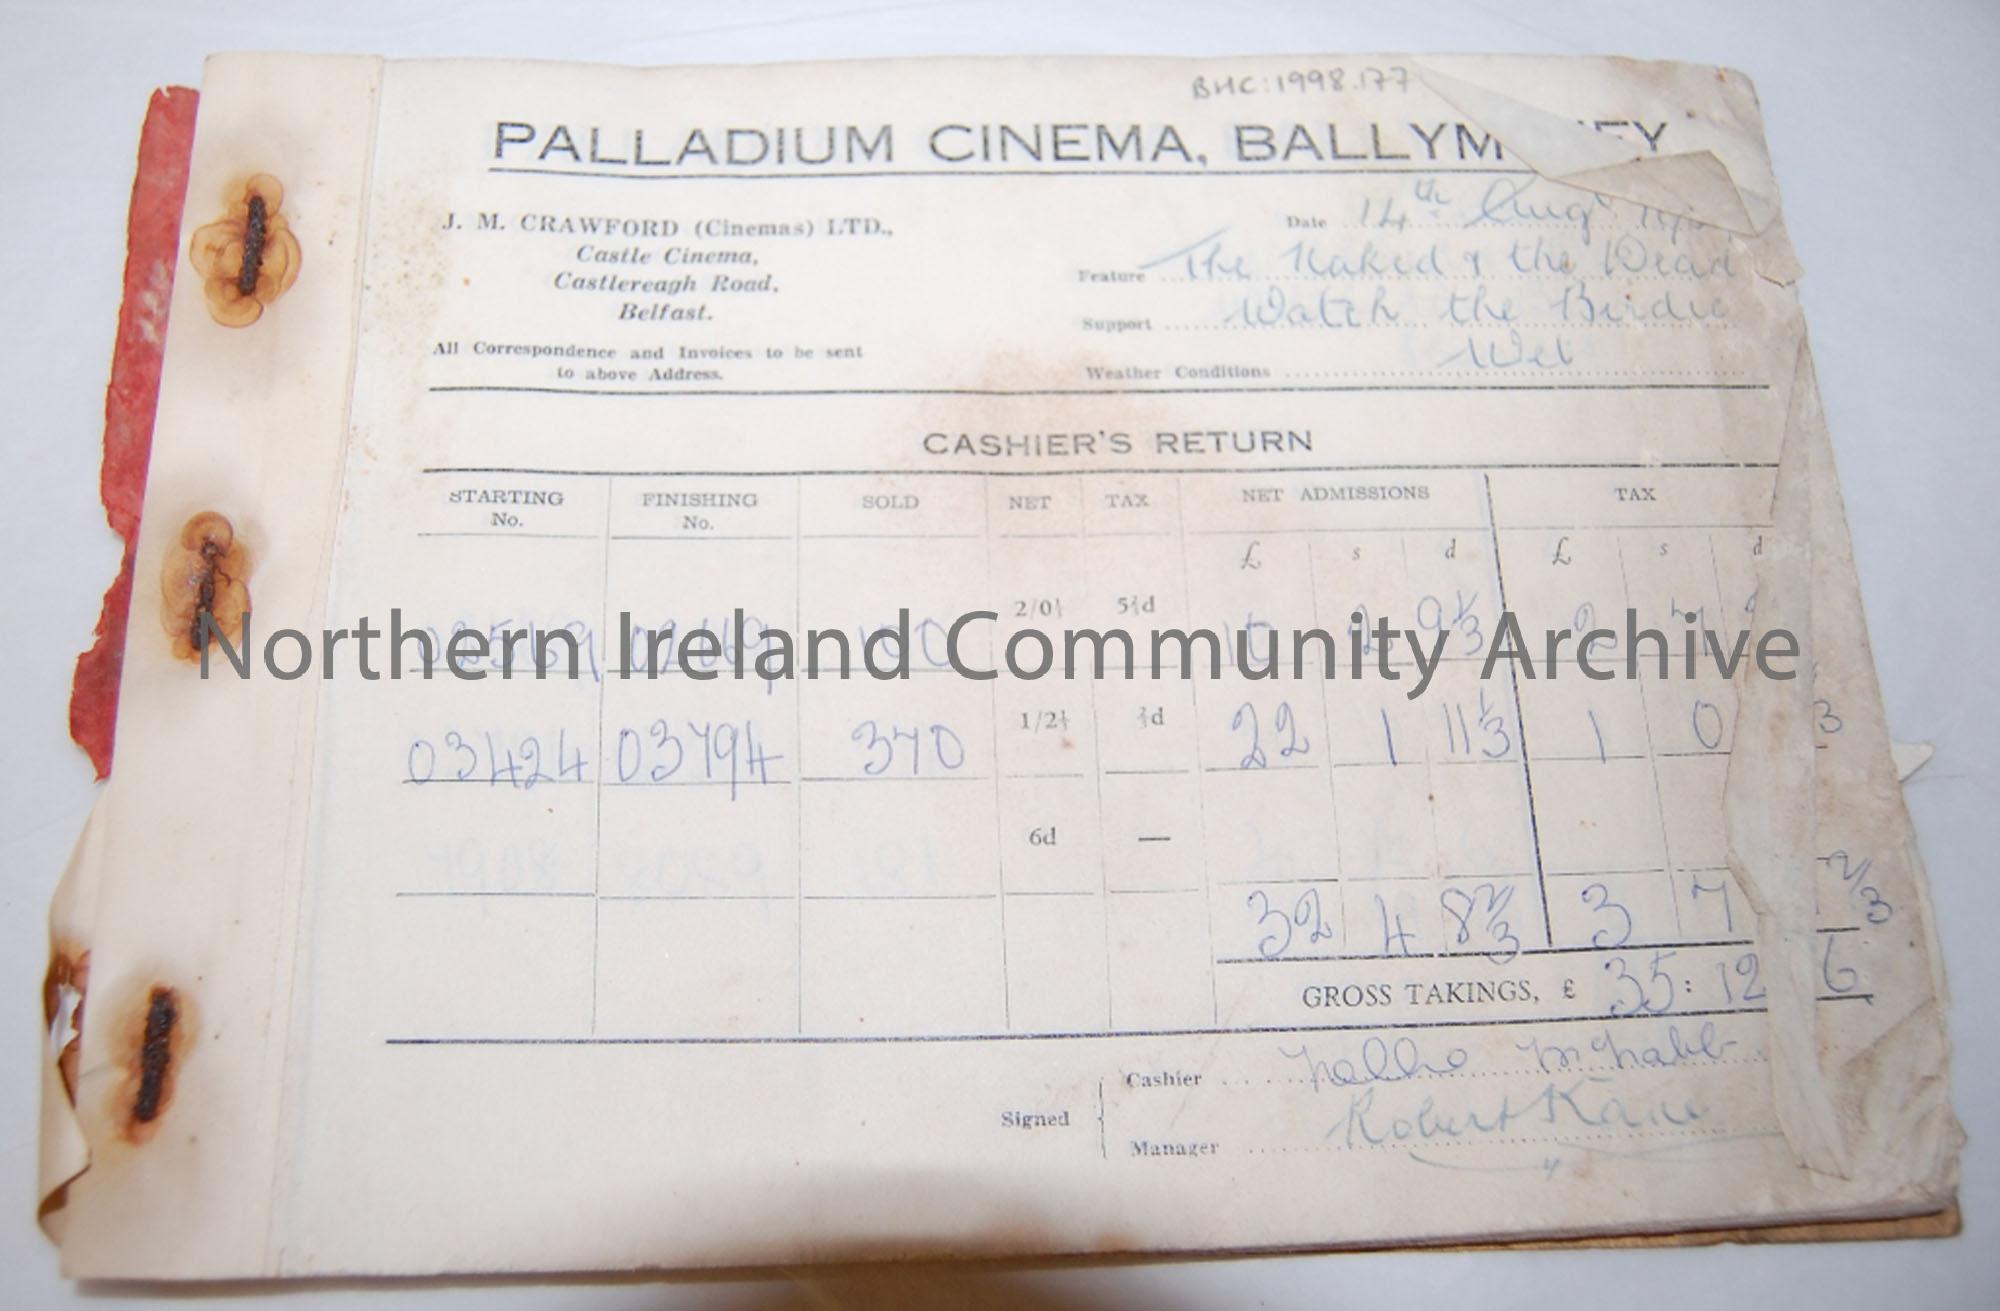 BHC:1998.177
PALLADIUM CINEMA, BALLYM EY
J. M. CRAWFORD (Cinemas) LTD.,
Castle Cinema,
Castlereagh Road,
Belfast.
All Correspondence and Invoices to be sent
to above Address.
Date 14th Augt
Feature The Naked & the Dead
Support Watch the Birdie
Weather Conditions Wet
CASHIER'S RETURN
STARTING No. FINISHING No. SOLD NET TAX NET ADMISSIONS TAX
£ s d £ s d
02569 02669 100 2/0¼ 5¾d 10 2 9⅓ 2 7
03424 03794 370 1/2¼ ¾d 22 1 11⅓ 1 0 3
6d —
32 4 8⅔ 3 7 ⅔
GROSS TAKINGS, £ 35:12 6
Signed
Cashier Nellie McNabb
Manager Robert Kane
Northern Ireland Community Archive